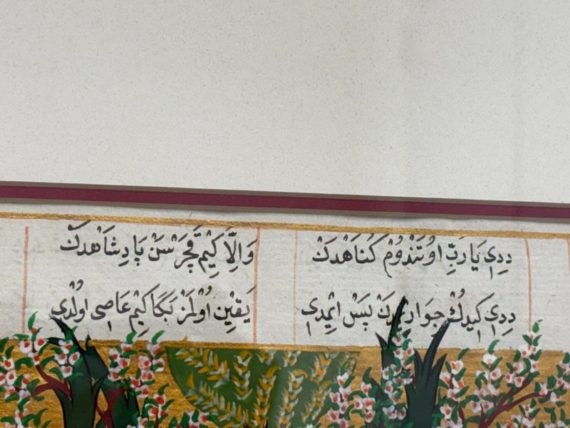 دِدِی یَا رَبِّ اوُتَنْدُومْ كُنَاهْدَنْ وَاِلَّا كِیْم قَچَرْسَنْ پَادِشَاهْدَنْ
دِدِی كِیدِكْ جِوَارِمْدَنْ پَسْ اِیمْدِی یَقِیْن اُوْلمَزْ بَكَا كِیْم عَاصِی اوُلْدِی